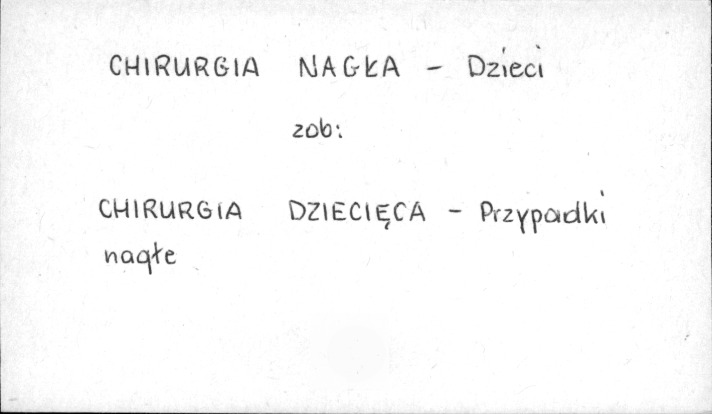 CHIRURGIA NAGŁA - Dzieci
zob:
CHIRURGIA DZIECIĘCA - Przypadki
nagłe